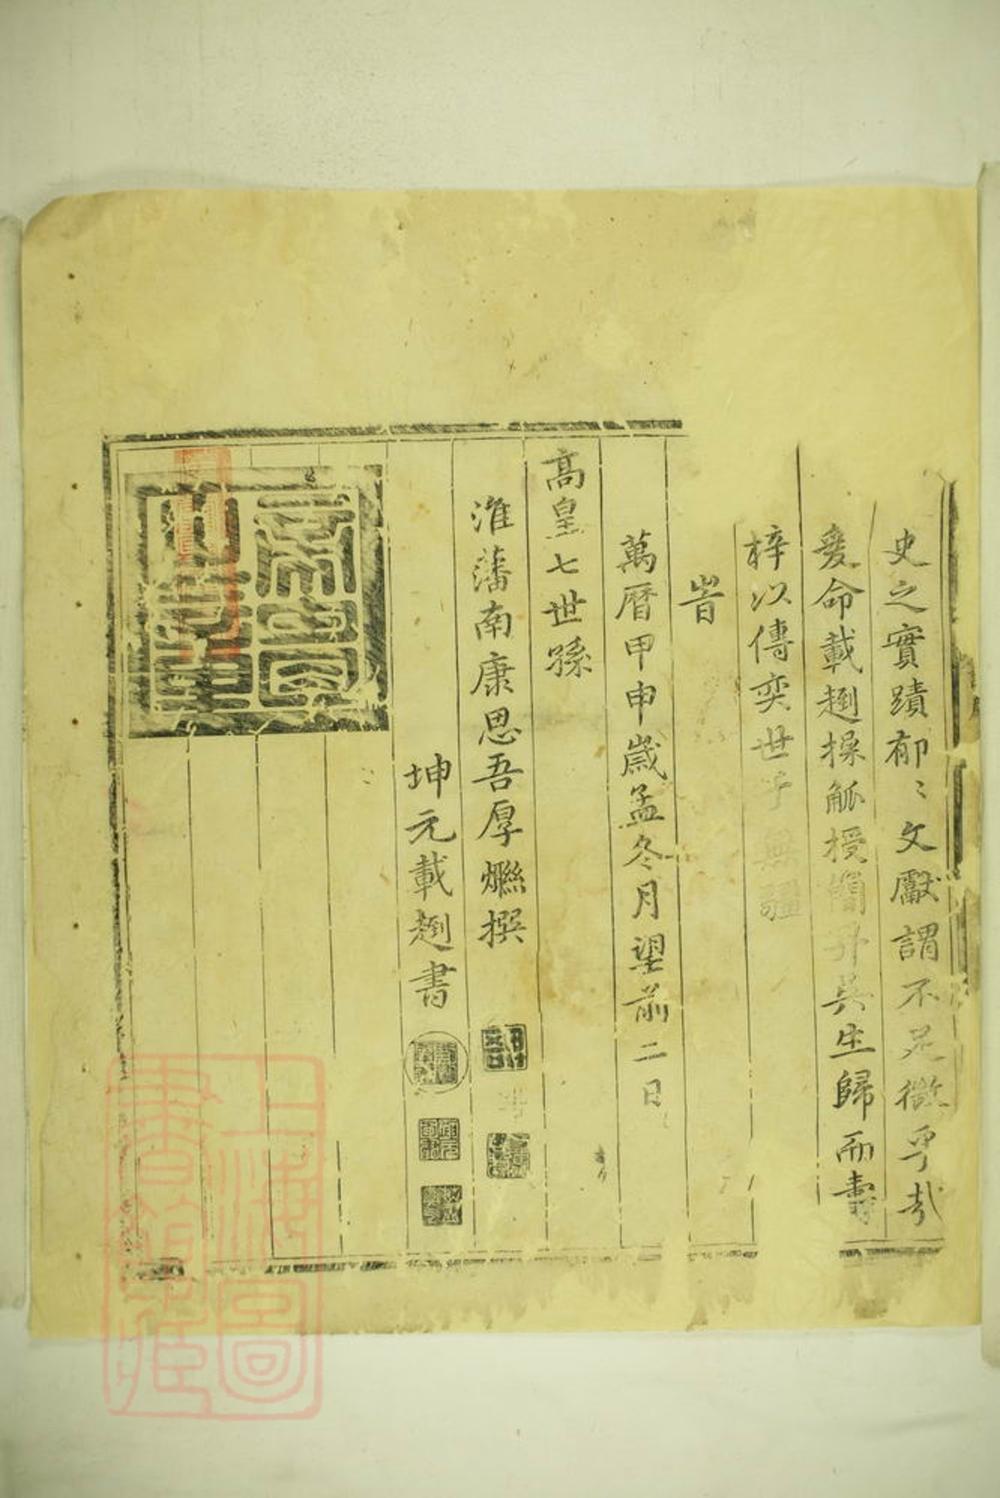 史之實蹟郁〻文獻謂不足徵乎哉
爰命載趔操觚授簡升吳生歸而壽
梓以傳奕世乎無疆
旹
萬曆甲申歲孟冬月望前二日
高皇七世孫
淮藩南康思吾厚㷌撰
坤元載趔書
上海圖書館藏